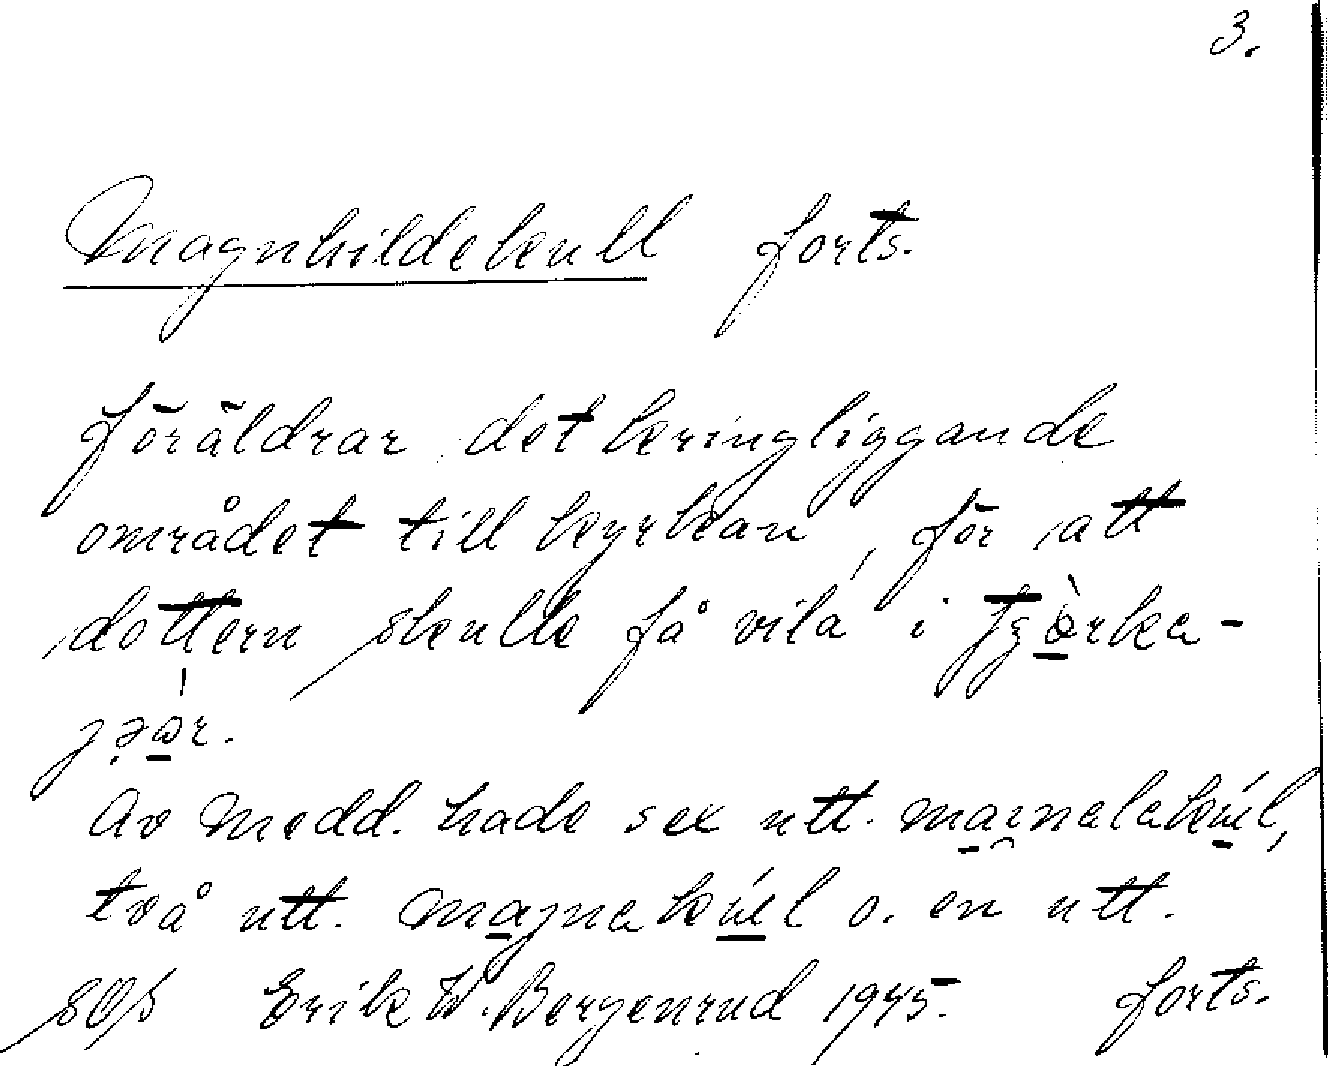 3.
Magnhildekull forts.
föräldrar det kringliggande
området till kyrkan, för att
dottern skulle få vila i
Av Medd. hade sex utt.
två utt. o. en utt.
Erik W. Bergenrud 1945. forts.